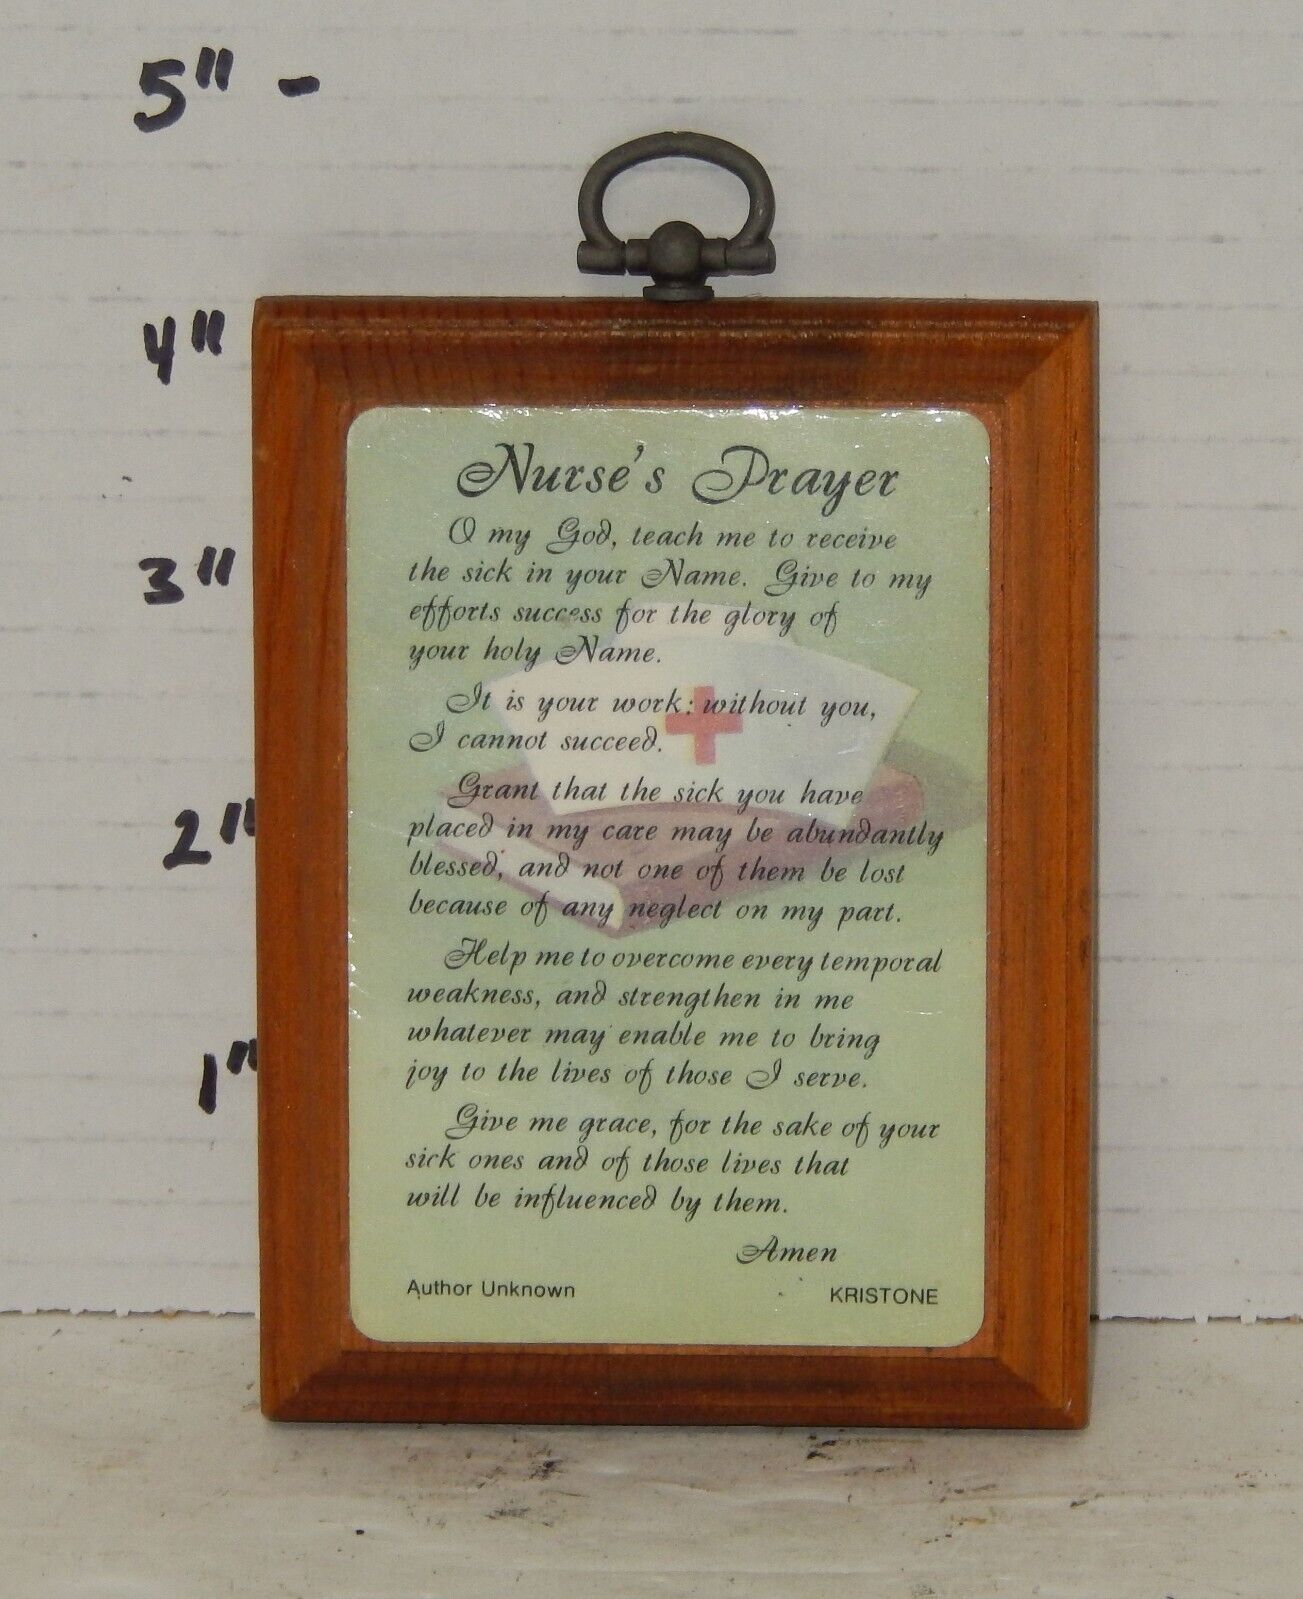 5" -
4"
3"
2"
1"
Nurse's Prayer
O my God, teach me to receive
the sick in your Name. Give to my
efforts success for the glory of
your holy Name.
It is your work: without you,
I cannot succeed.
Grant that the sick you have
placed in my care may be abundantly
blessed, and not one of them be lost
because of any neglect on my part.
Help me to overcome every temporal
weakness, and strengthen in me
whatever may enable me to bring
joy to the lives of those I serve.
Give me grace, for the sake of your
sick ones and of those lives that
will be influenced by them.
Amen
Author Unknown KRISTONE